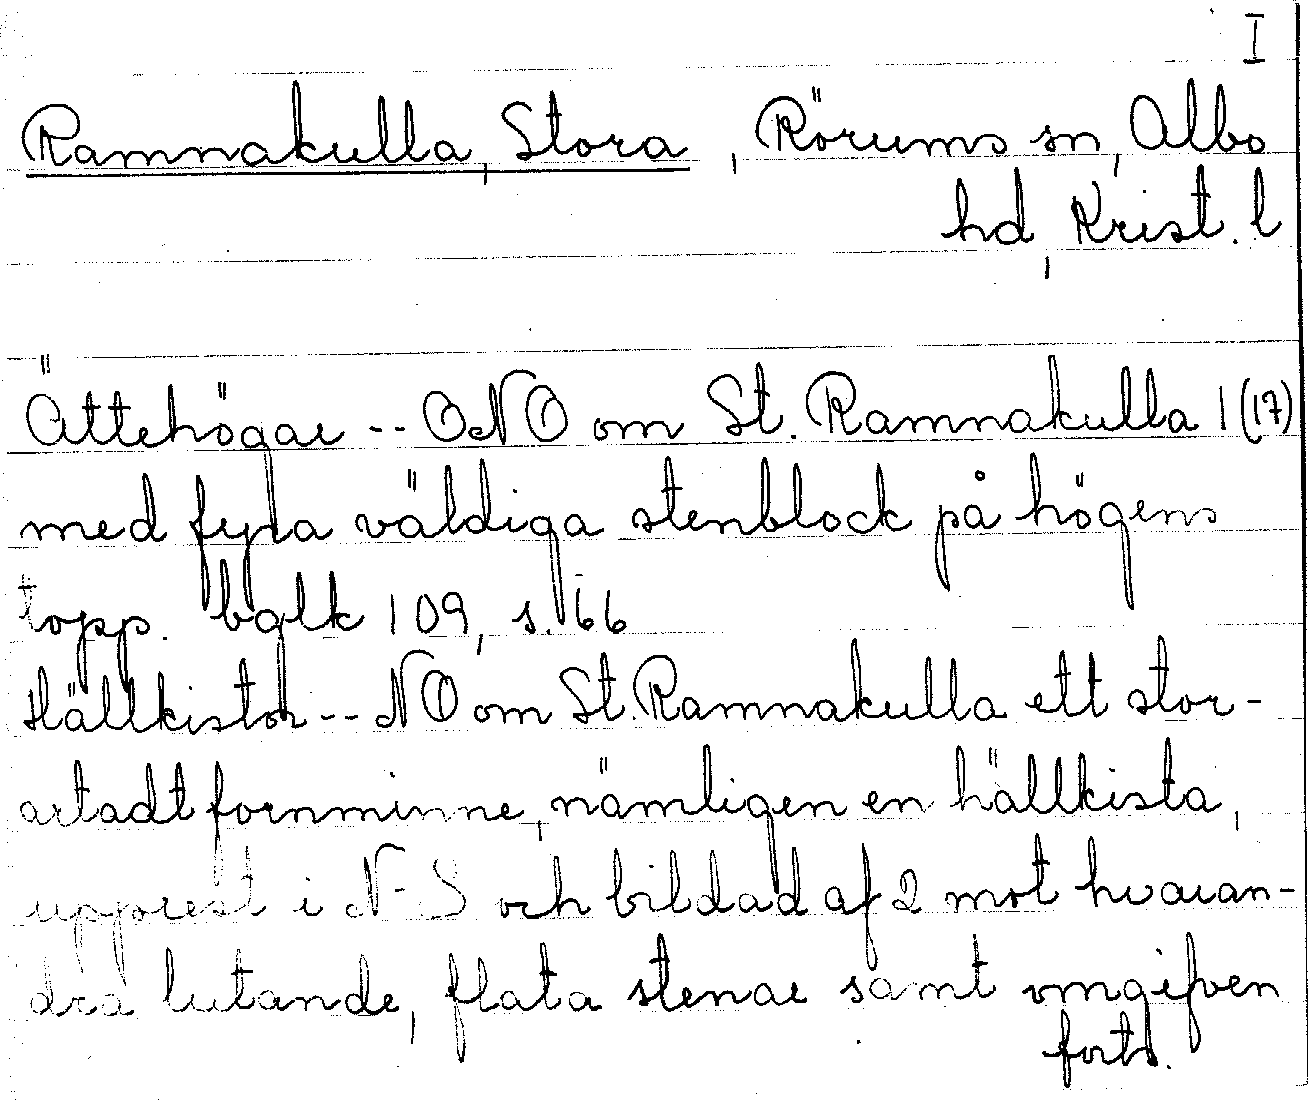 I
Ramnakulla, Stora, Rörums sn, Albo
hd, Krist. l
Ättehögar -- ONO om St. Ramnakulla 1 (17)
med fyra väldiga stenblock på högens
topp. bglk 109, s. 66
Hällkistor -- NO om St. Ramnakulla ett stor-
artadt fornminne, nämligen en hällkista,
upprest i N-S och bildad af 2 mot hvaran-
dra lutande, flata stenar samt omgifven
forts.